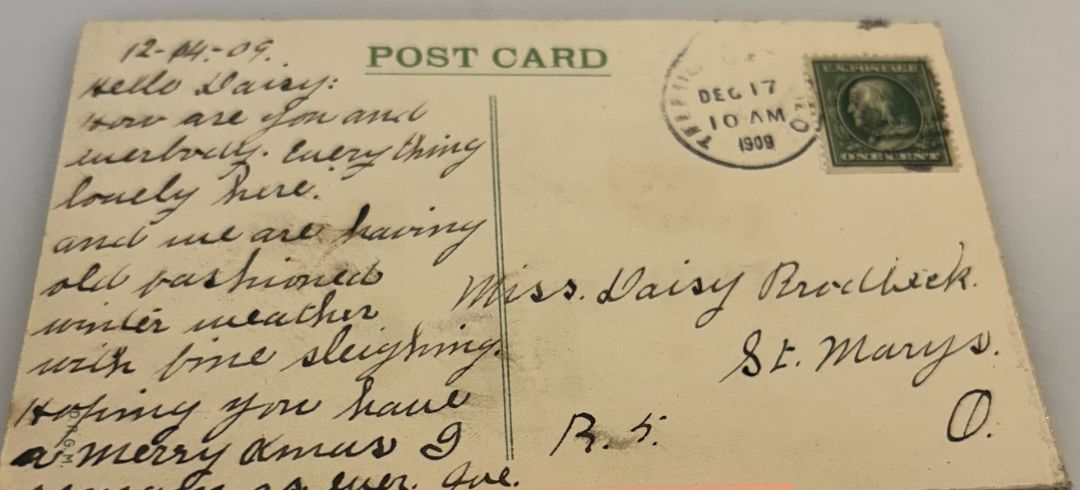 12-14-09.
Hello Daisy:
How are you and
everbody. Every thing
lovely here.
and we are having
old fashioned
winter weather
with fine sleighing.
Hoping you have
a merry Xmas I
remain as ever. Joe.
POST CARD
DEC 17
10 AM
1909
U.S. POSTAGE
ONE CENT
Miss. Daisy Brodbeck.
St. Marys.
R. 5.
O.